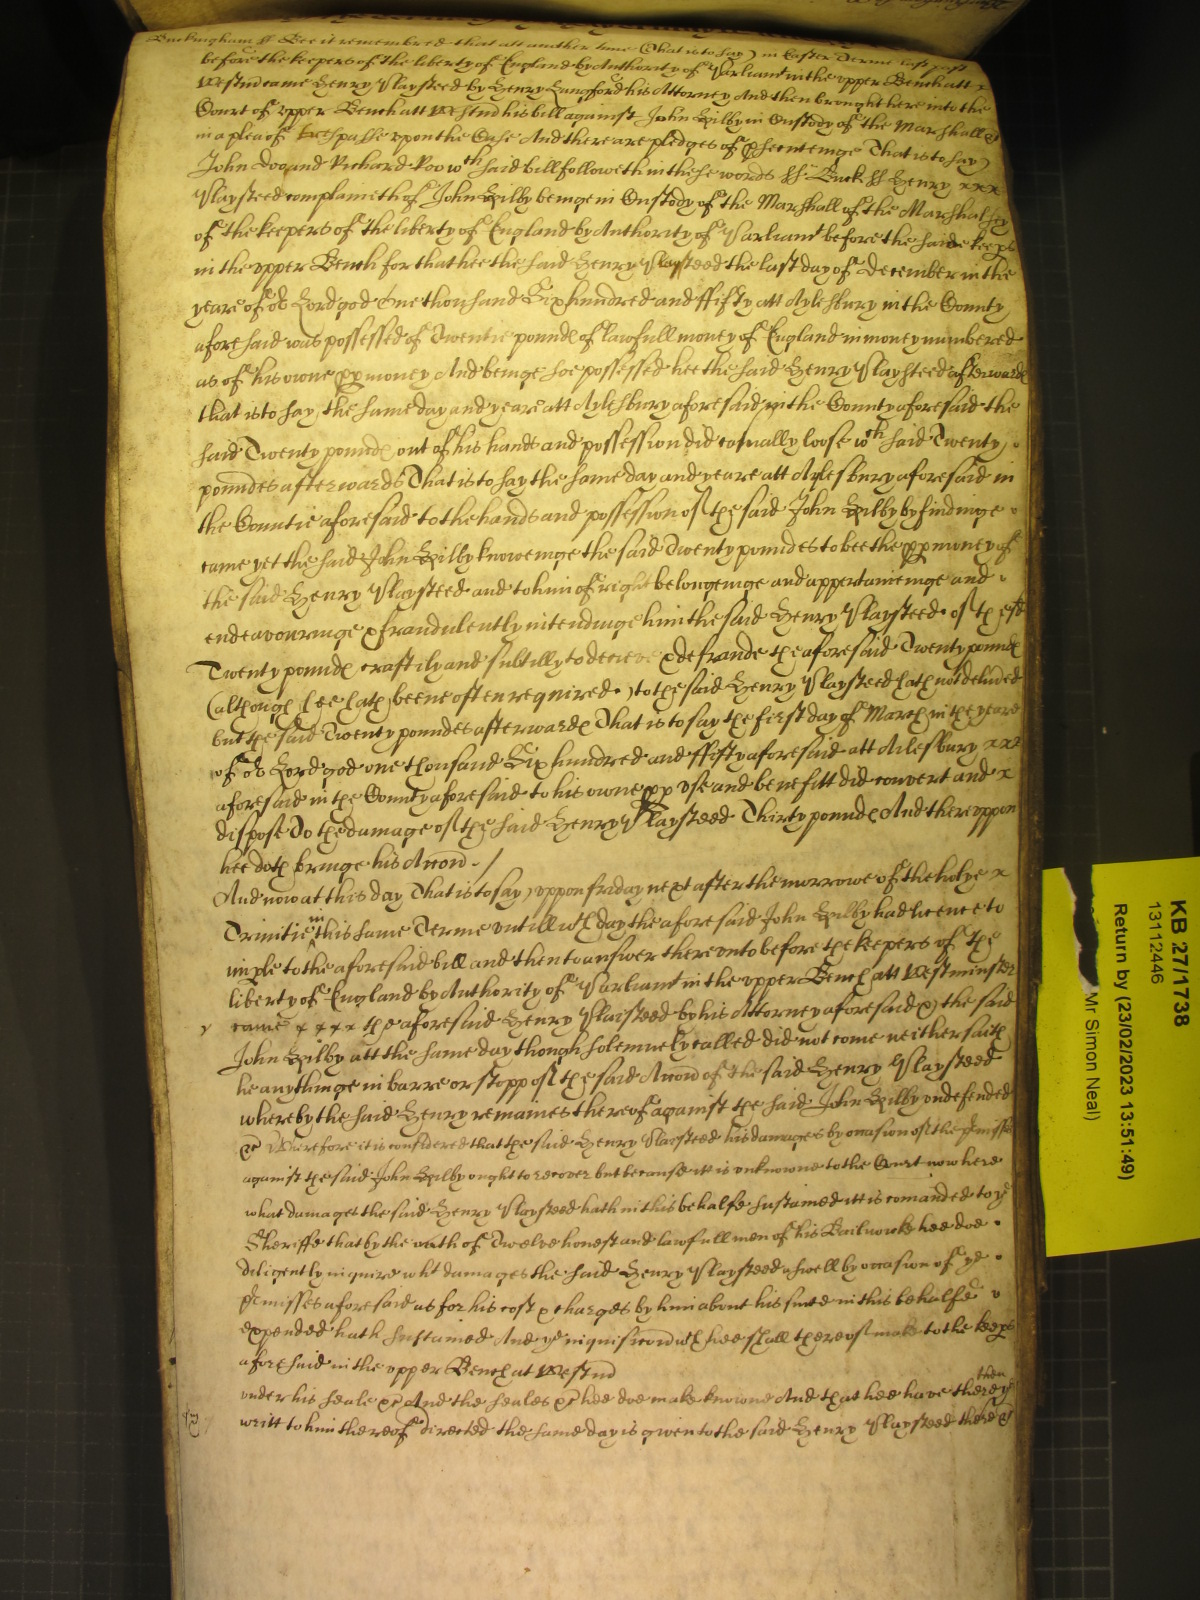 Buckingham ss Bee it remembred that att another time (That is to say) in Easter Terme last past
before the keepers of the liberty of England by Authority of Parliamt in the upper Bench att x
Westm came Henry Playsteed by Henry Langford his Attorney And then brought here into the
Court of upper Bench att Westm his bill against John Bilby in Custody of the Marshall &c
in a plea of trespasse upon the Case And there are pledges of psecuteinge That is to say)
John Doo and Richard Roo wch said bill followeth in these words ss Buck ss Henry xxx
Playsteed complaineth of John Bilby beinge in Custody of the Marshall of the Marshalsey
of the keepers of the liberty of England by Authority of Parliamt before the said keeps
in the upper Bench for that hee the said Henry Playsteed the last day of December in the
yeare of or Lord god One thousand Six hundred and ffifty att Aylesbury in the County
aforesaid was possessed of Twentie pounds of lawfull money of England in money numbered
as of his owne pp money And beinge soe possessed hee the said Henry Playsteed afterwards
that is to say, the same day and yeare att Aylesbury aforesaid in the County aforesaid the
said Twenty pounds out of his hands and possession did casually loose wch said Twenty
poundes afterwards That is to say the same day and yeare att Aylesbury aforesaid in
the Countie aforesaid to the hands and possession of the said John Bilby by findinge
came yet the said John Bilby knoweinge the said Twenty poundes to bee the pp money of
the said Henry Playsteed and to him of right belongeinge and apperteineinge and
endeavouringe & fraudulently intendinge him the said Henry Playsteed of the sd
Twenty pounds craftily and subtilly to deceive & defraude the aforesaid Twenty pounds
(although hee hath beene often required) to the said Henry Playsteed hath not deliued
but the said Twenty poundes afterwards That is to say the first day of March in the yeare
of or Lord god one thousand Six hundred and ffifty aforesaid att Ailesbury xxx
aforesaid in the County aforesaid to his owne pp use and benefitt did convert and x
dispose To the damage of the said Henry Playsteed Thirty pounds And thereuppon
hee doth bringe his Accon /
And now at this day That is to say) uppon friday next after the morrowe of the holye x
Trinitie in this same Terme untill wch day the aforesaid John Bilby had licence to
imple to the aforesaid bill and then to answer thereunto before the keepers of the
liberty of England by Authority of Parliamt in the upper Bench att Westminster
came x x x x the aforesaid Henry Plaisteed by his Attorney aforesaid &) the said
John Bilby att the same day though solemnely called did not come neither saith
he anythinge in barre or stopp of the said Accon of the said Henry Playsteed
whereby the said Henry remaines thereof against the said John Bilby undefended
&c Wherefore it is considered that the said Henry Plaisteed his damages by occasion of the pmisses
against the said John Bilby ought to recover but because itt is unknowne to the Court now here
what damages the said Henry Playsteed hath in this behalfe sustained itt is comanded to ye
Sheriffe that by the oath of Twelve honest and lawfull men of his Bailiwicke hee doe
diligently inquire wht damages the said Henry Playsteed aswell by occasion of ye
pmisses aforesaid as for his cost & charges by him about his suite in this behalfe
expended hath sustained And ye inquisicon wch hee shall thereof make to the keeps
aforesaid in the upper Bench at Westm
under his seale &c And the seales &c hee doe make knowne And that hee have then there ye
writt to him thereof directed the same day is given to the said Henry Playsteed there &c
KB 27/1738
13112446
Return by (23/02/2023 13:51:49)
Mr Simon Neal)